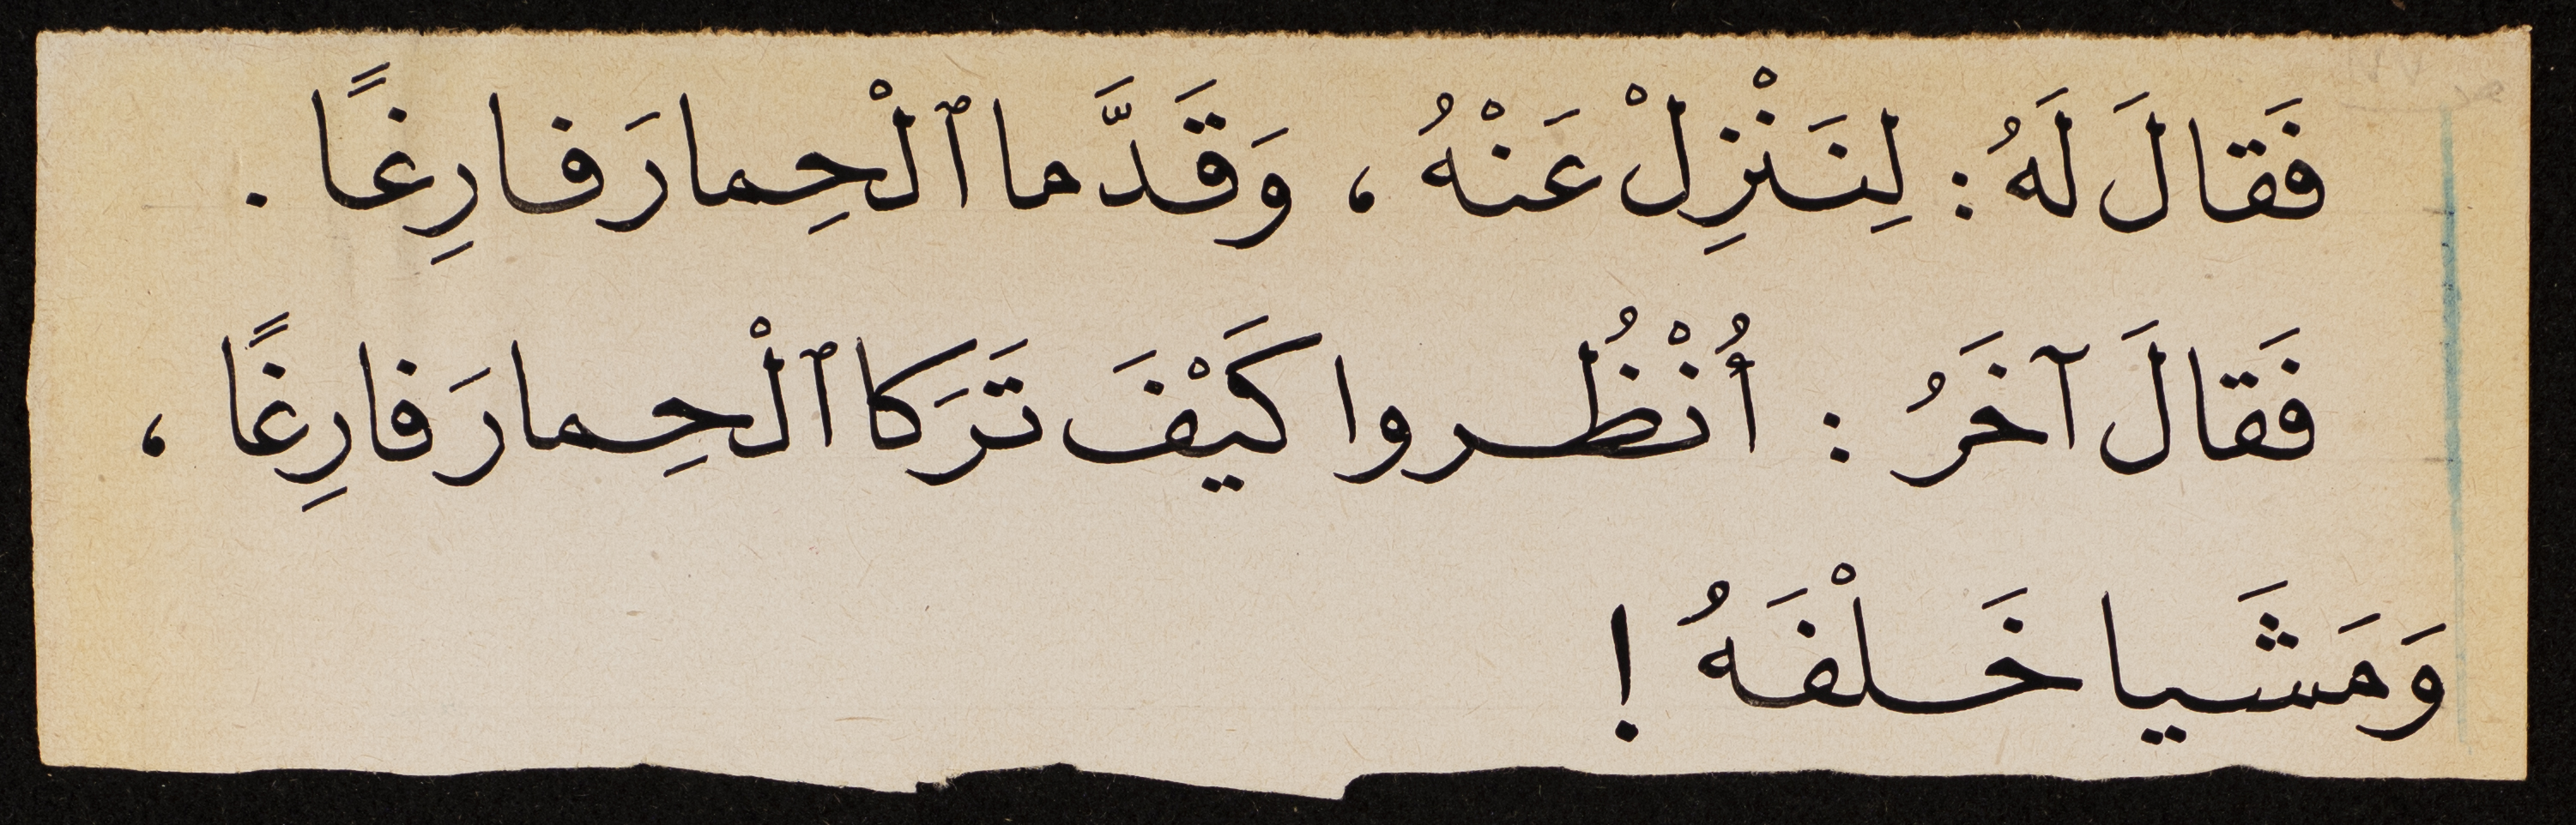 فَقالَ لَهُ : لِنَنْزِلْ عَنْهُ ، وَقَدَّما ٱلْحِمارَ فارِغًا .
فَقالَ آخَرُ : أُنْظُروا كَيْفَ تَرَكا ٱلْحِمارَ فارِغًا ،
وَمَشَيا خَلْفَهُ !